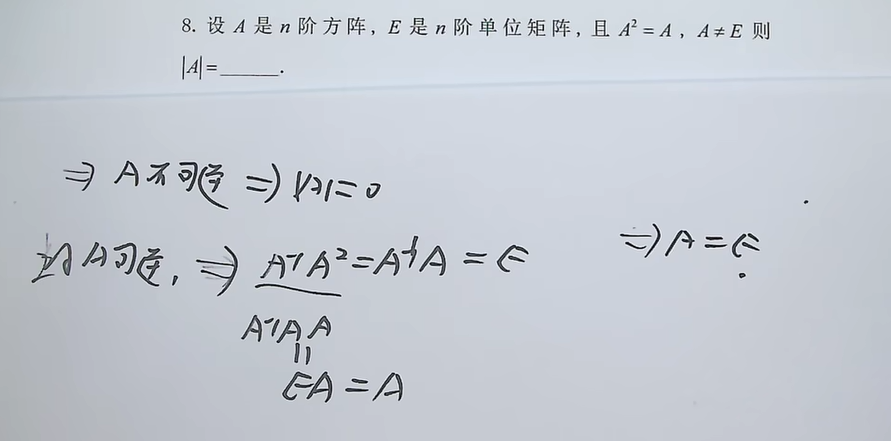 8. 设 A 是 n 阶方阵, E 是 n 阶单位矩阵, 且 A² = A , A ≠ E 则
|A| = ______.
⇒ A 不可逆 ⇒ |A| = 0
A可逆, ⇒ A⁻¹A² = A⁻¹A = E ⇒ A = E
A⁻¹A A
=
EA = A